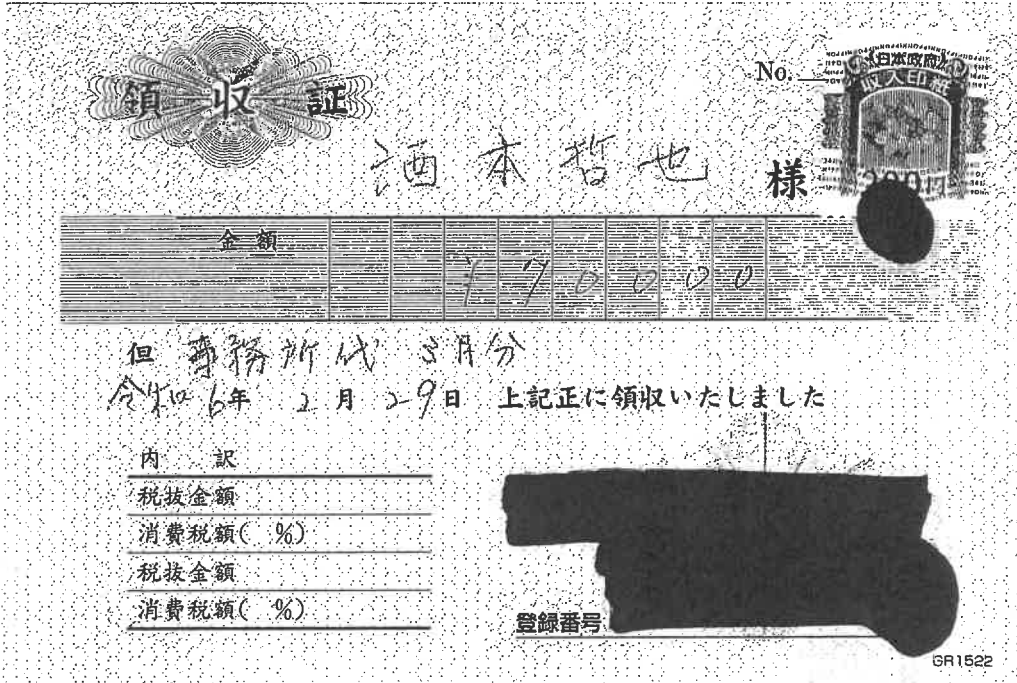 領収証
No.
日本政府
収入印紙
200円
酒本哲也 様
金額
¥70000
但 事務所代 3月分
令和6年 2月29日 上記正に領収いたしました
内訳
税抜金額
消費税額( %)
税抜金額
消費税額( %)
登録番号
GR1522